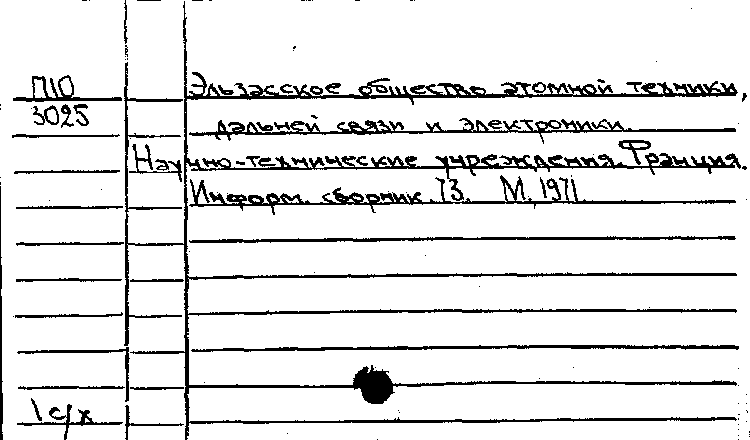 П10 Эльзасское общество атомной техники,
3025 дальней связи и электроники.
Научно-технические учреждения. Франция.
Информ. сборник. 73. М. 1971
1 с/х